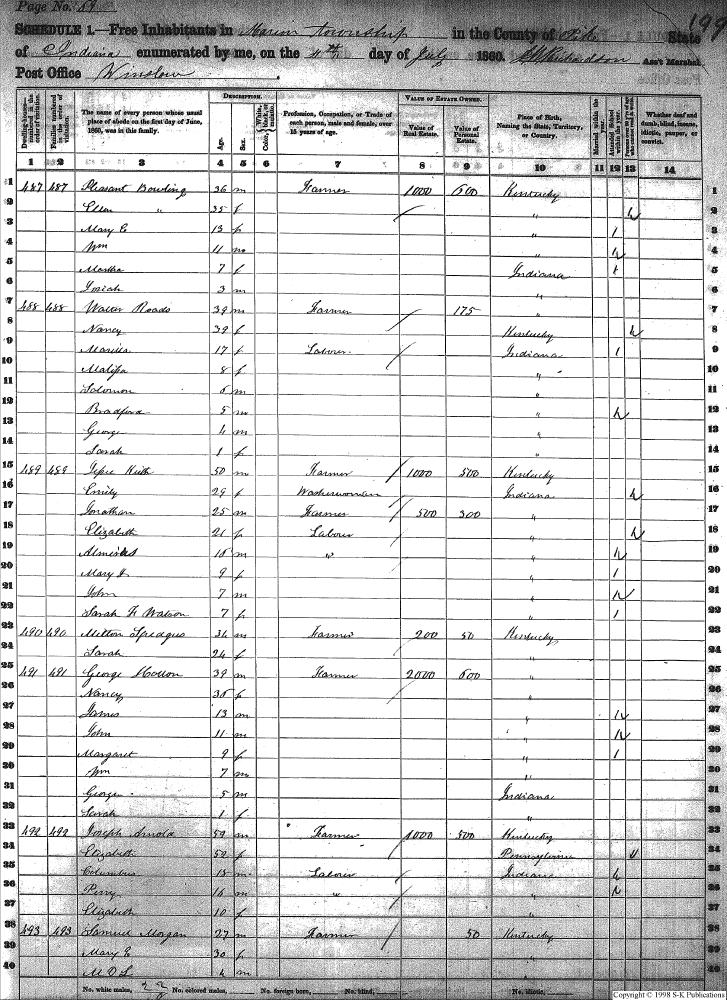 Page No. 59
197
SCHEDULE 1.—Free Inhabitants in Marion township in the County of Pike State
of Indiana enumerated by me, on the 4th day of July 1860. Richardson Ass't Marshal.
Post Office Winslow
Dwelling-houses—numbered in the order of visitation.
Families numbered in the order of visitation.
The name of every person whose usual place of abode on the first day of June, 1860, was in this family.
DESCRIPTION.
Age.
Sex.
Color, White, black, or mulatto.
Profession, Occupation, or Trade of each person, male and female, over 15 years of age.
VALUE OF ESTATE OWNED.
Value of Real Estate.
Value of Personal Estate.
Place of Birth, Naming the State, Territory, or Country.
Married within the year.
Attended School within the year.
Whether deaf and dumb, blind, insane, idiotic, pauper, or convict.
1 2 3 4 5 6 7 8 9 10 11 12 13 14
1 487 487 Pleasant Bowling 36 m Farmer 1000 600 Kentucky 1
2 Ellen " 35 f " 2
3 Mary E 13 f " 1 3
4 Wm 11 m " 4
5 Martha 7 f Indiana 1 5
6 Josiah 3 m " 6
7 488 488 Walter Roads 39 m Farmer 175 " 7
8 Nancy 39 f Kentucky 8
9 17 f Laborer Indiana 1 9
10 Malissa 8 f " 10
11 Solomon 6 m " 11
12 Bradford 5 m " 12
13 George 4 m " 13
14 Sarah 1 f " 14
15 489 489 Jesse Keith 50 m Farmer 1000 500 Kentucky 15
16 Emily 29 f Washerwoman Indiana 16
17 Jonathan 25 m Farmer 500 300 " 17
18 Elizabeth 21 f Labour " 18
19 18 m " " 19
20 Mary J. 9 f " 1 20
21 John 7 m " 21
22 Sarah F Watson 7 f " 1 22
23 490 490 Milton Spraggs 34 m Farmer 200 50 Kentucky 23
24 Sarah 24 f " 24
25 491 491 George Hollon 39 m Farmer 2000 600 " 25
26 Nancy 36 f " 26
27 James 13 m " 27
28 John 11 m " 28
29 Margaret 9 f " 1 29
30 Wm 7 m " 30
31 George 5 m Indiana 31
32 Sarah 1 f " 32
33 492 492 Joseph Arnold 59 m Farmer 1000 500 Kentucky 33
34 Elizabeth 59 f Pennsylvania 34
35 Columbus 18 m Labour Indiana 35
36 Perry 16 m " " 36
37 Elizabeth 10 f " 37
38 493 493 Samuel Morgan 27 m Farmer 50 Kentucky 38
39 Mary E 30 f " 39
40 M D L 4 m " 40
No. white males, 22 No. colored males, No. foreign born, No. blind, No. idiotic,
Copyright © 1998 S-K Publications